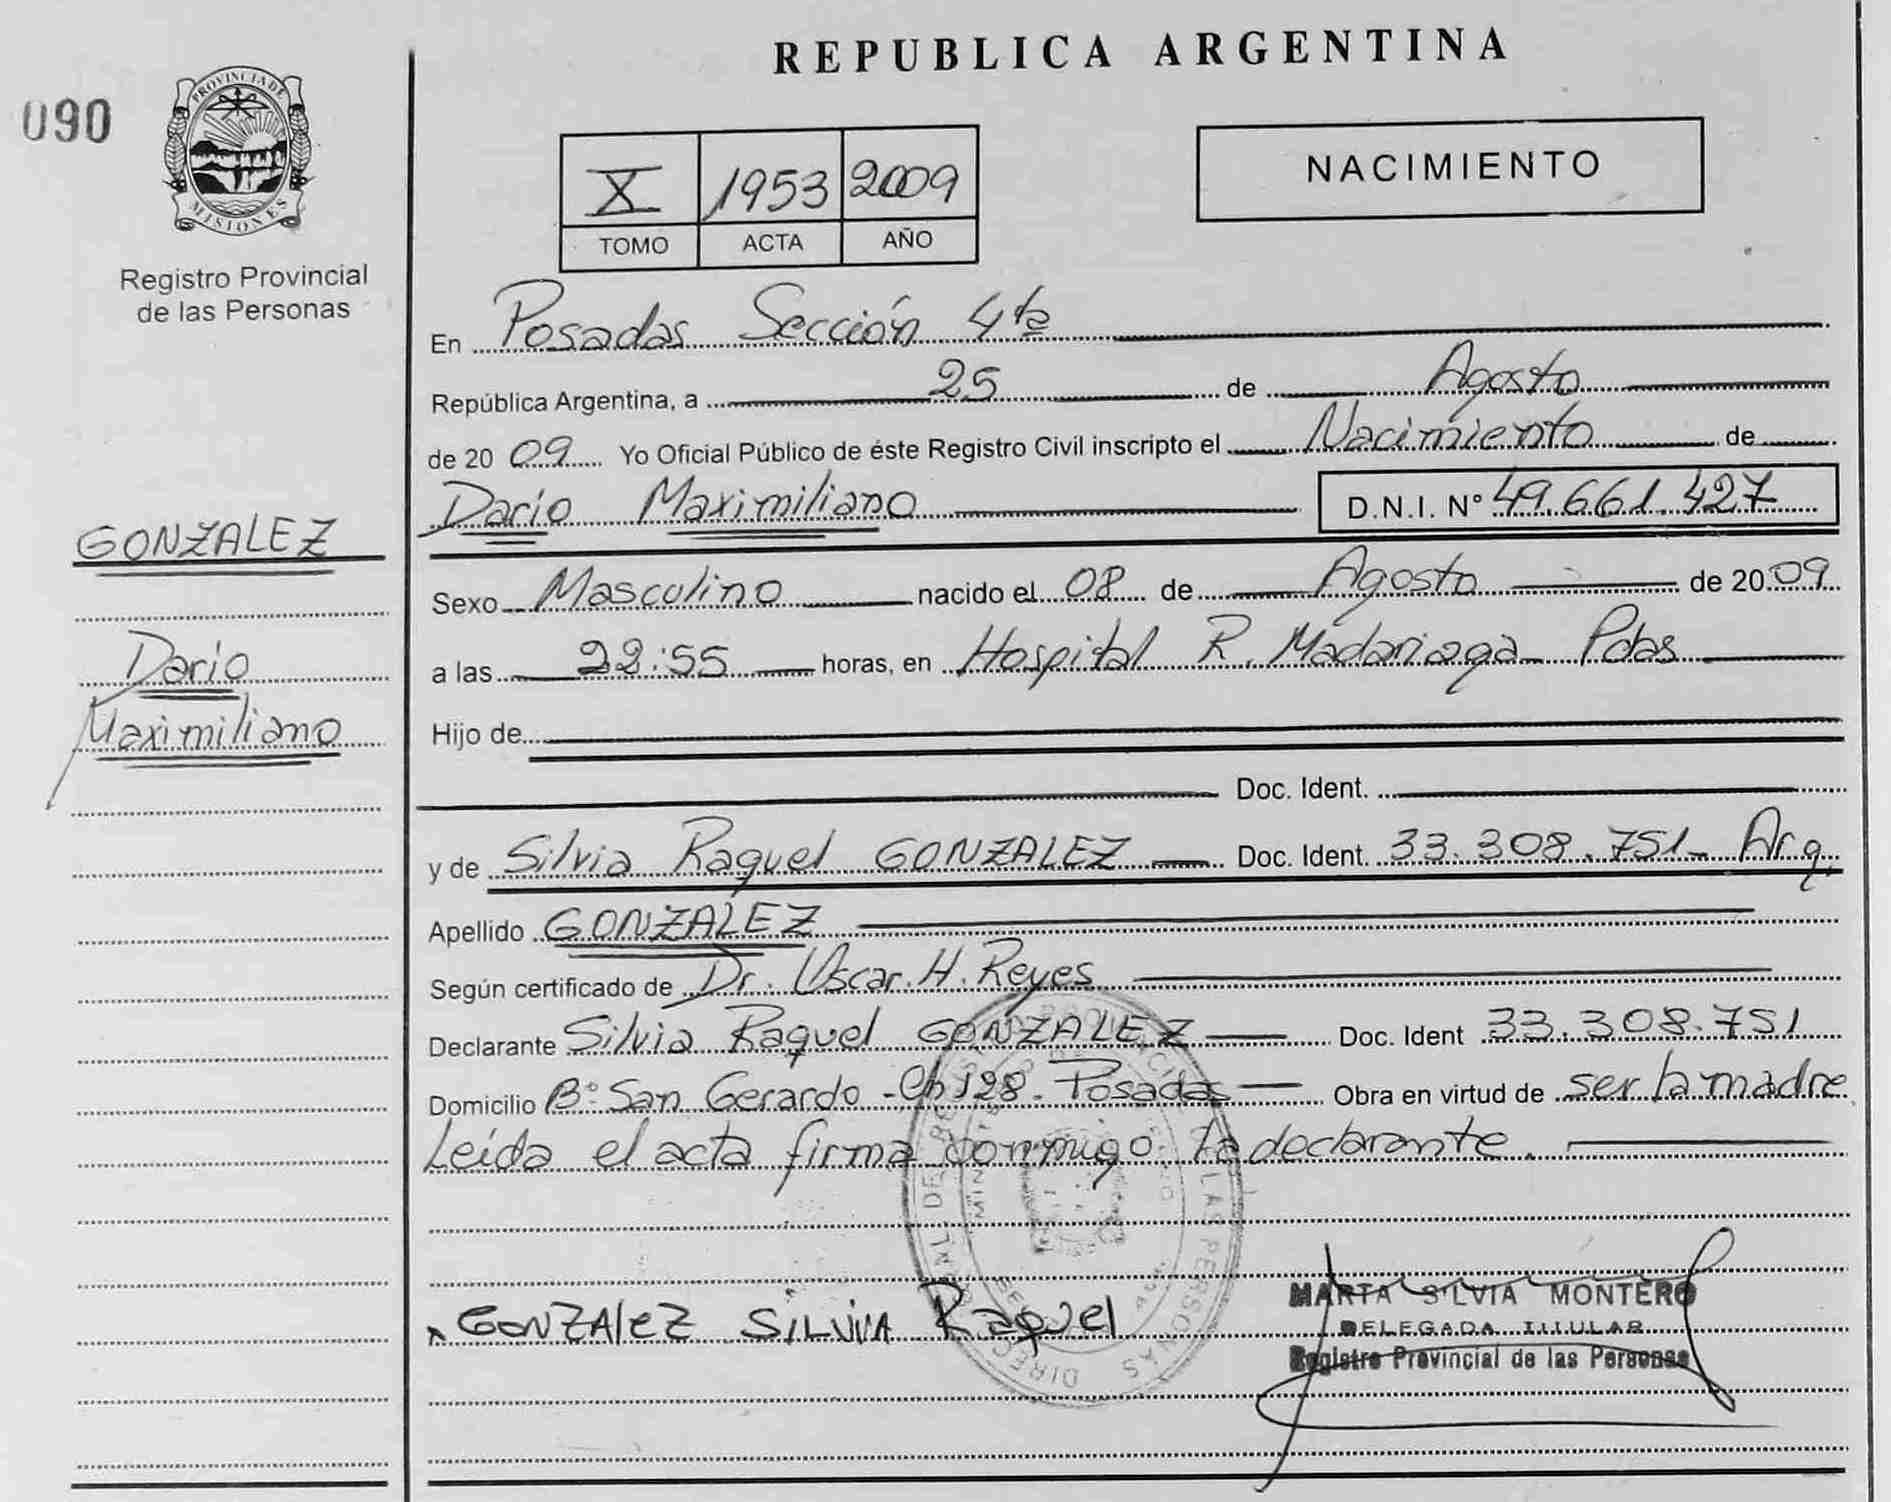 REPUBLICA ARGENTINA
090
PROVINCIA DE
MISIONES
Registro Provincial
de las Personas
X 1953 2009
TOMO ACTA AÑO
NACIMIENTO
GONZALEZ
Dario
Maximiliano
En Posadas Sección 4ta
República Argentina, a 25 de Agosto
de 20 09 Yo Oficial Público de éste Registro Civil inscripto el Nacimiento de
Dario Maximiliano D.N.I. Nº 49.661.427
Sexo Masculino nacido el 08 de Agosto de 20 09
a las 22:55 horas, en Hospital R. Madariaga Pdas
Hijo de
Doc. Ident.
y de Silvia Raquel GONZALEZ Doc. Ident. 33.308.751- Arg.
Apellido GONZALEZ
Según certificado de Dr. Oscar. H. Reyes
Declarante Silvia Raquel GONZALEZ Doc. Ident 33.308.751
Domicilio Bº San Gerardo - Ch 128 - Posadas Obra en virtud de ser la madre
Leída el acta firma conmigo la declarante.
GONZAlEZ SILVIA Raquel
MARTA SILVIA MONTERO
DELEGADA TITULAR
Registro Provincial de las Personas